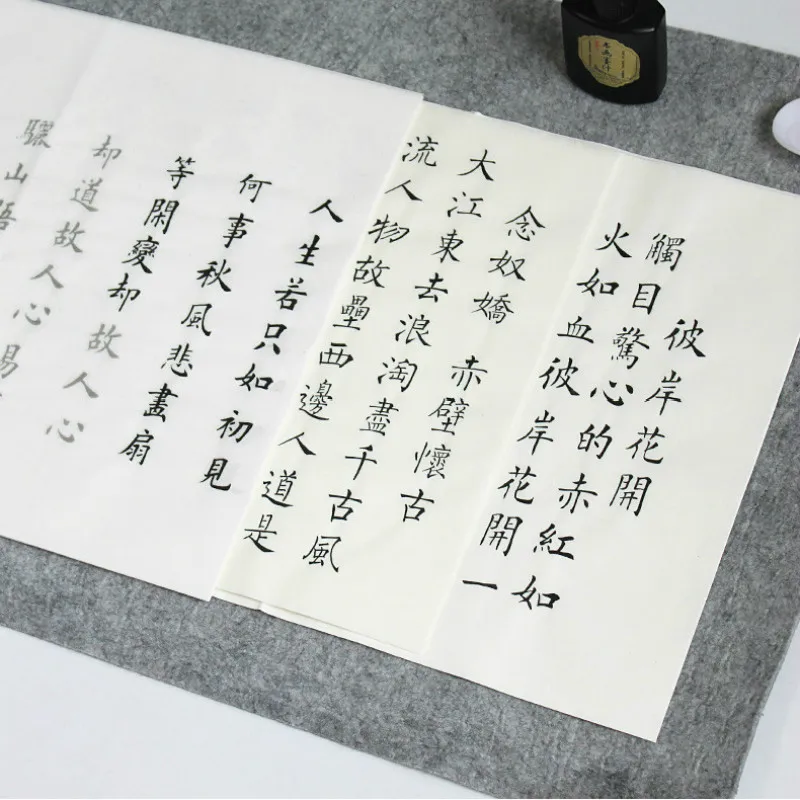 彼岸花開
觸目驚心的赤紅如
火如血彼岸花開一
念奴嬌 赤壁懷古
大江東去浪淘盡千古風
流人物故壘西邊人道是
人生若只如初見
何事秋風悲畫扇
等閑變却故人心
却道故人心易
驪山語